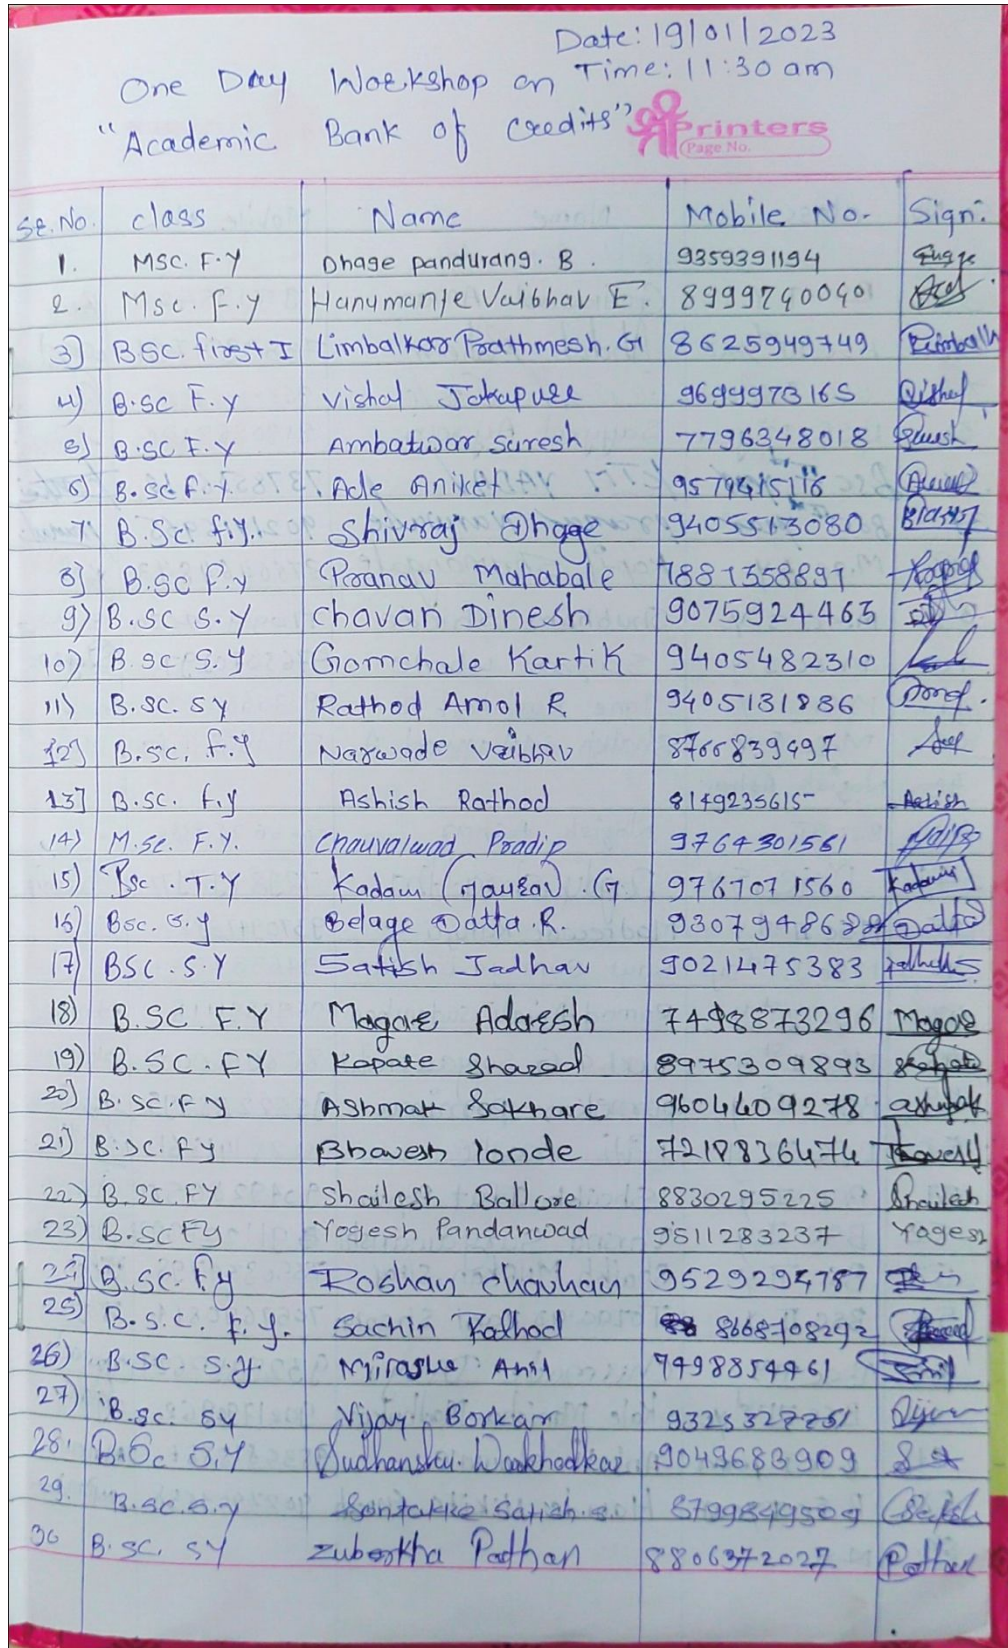 Date: 19/01/2023
One Day Workshop on Time: 11:30 am
"Academic Bank of Credits"
Printers
Page No.
Sr. No. class Name Mobile No. Sign.
1. MSC. F.Y Dhage pandurang. B. 9359391194
2. Msc. F.y Hanumante Vaibhav E. 8999740040
3] BSC. first I Limbalkar Prathmesh. G 8625949749
4) B.SC F.y Vishal Jokapure 9699973165 Vishal
5) B.SC F.Y Ambatwar Suresh 7796348018 Suresh
6) B.Sc F.Y. Ade Aniket
7. B.Sc. f.y. Shivraj Dhage 9405513080
8] B.SC F.y Pranav Mahabale 7881358891
9) B.SC S.Y Chavan Dinesh 9075924465
10) B.SC S.Y Gomchale Kartik 9405482310
11) B.SC. SY Rathod Amol R. 9405131836
12] B.sc. f.y Narwade Vaibhav 8766839497
13] B.SC. f.y Ashish Rathod 8149235615
14) M.Sc. F.Y. Chauvalwad Pradip 9764301561
15) Bsc. T.Y Kadam Gaurav .G 9767071560 Kadam
16) Bsc. S.y Belage Datta.R. Datta
17) BSC. S.Y Satish Jadhav 9021475383
18) B.SC F.Y Magare Adaresh 7498873296 Magare
19) B.SC. FY Kapate Sharad 8975309893
20) B.SC.FY Ashmak Sakhare 9604409278
21) B.SC. FY Bhavesh londe 7218836474
22) B.SC. FY Shailesh Ballore 8830295225 Shailesh
23) B.SC FY Yogesh Pandanwad 9511283237 Yogesh
24] B.SC. Fy Roshan Chavhan 9529294787
25) B.S.C. F.y. Sachin Rathod 8668708292
26) B.SC. S.y. Anil 7498854461
27) B.SC. SY Vijay Borkar 9325327751
28. B.Sc S.Y Sudhanshu. Wankhodkar 9049683909
29. B.SC.S.Y Sontakke Satish.S. 8799849509
30 B.SC. SY Zuberkha Pathan 8806372027 Pathan